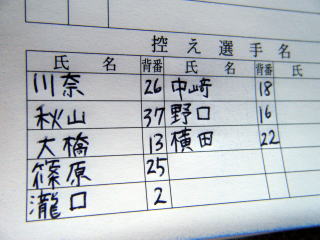 控え選手名
氏 名 背番 氏 名 背番 氏
川奈 26 中崎 18
秋山 37 野口 16
大橋 13 横田 22
篠原 25
瀧口 2